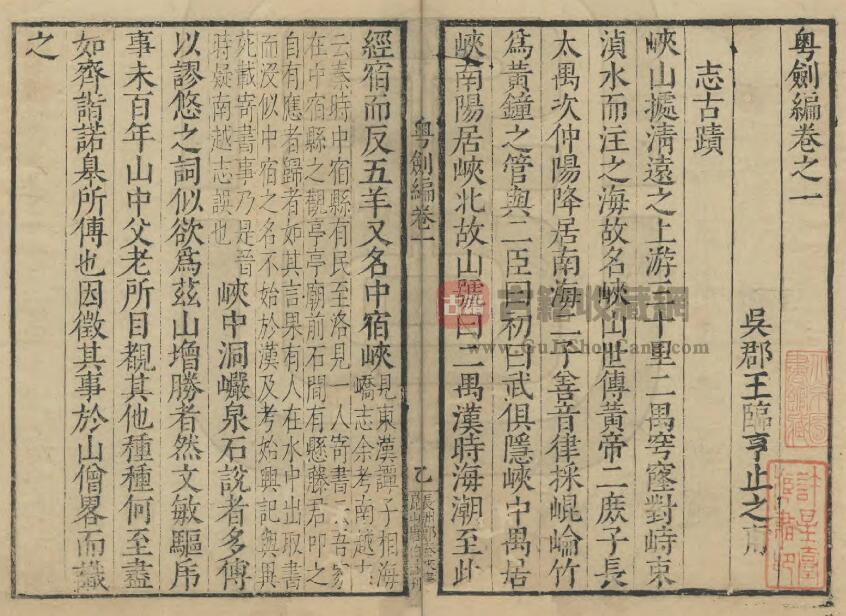 粤劍編卷之一
吳郡王臨亨止之甫
志古蹟
峽山據清遠之上游三十里二禺穹窿對峙束
湞水而注之海故名峽山世傳黃帝二庶子長
太禺次仲陽降居南海二子善音律採崐崘竹
爲黃鐘之管與二臣曰初曰武俱隱峽中禺居
峽南陽居峽北故山號曰二禺漢時海潮至此
粤劍編卷一
乙
經宿而反五羊又名中宿峽見東漢譚子相海
嶠志余考南越志
云秦時中宿縣有民至洛見一人寄書云吾家
在中宿縣之觀亭亭廟前石間有懸藤君叩之
自有應者歸者如其言果有人在水中出取書
而没似中宿之名不始於漢及考始興記與異
苑載寄書事乃是晉
時疑南越志誤也
峽中洞巖泉石說者多傳
以謬悠之詞似欲爲茲山增勝者然文敏驅帋
事未百年山中父老所目覩其他種種何至盡
如齊諧諾臯所傳也因徵其事於山僧畧而識
之
古籍收藏網
www.GuJiShouCang.com